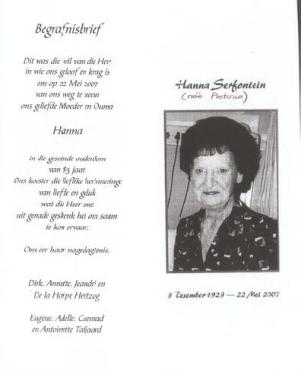 Begrafnisbrief
Dit was die wil van die Heer
in wie ons geloof en krag is
om op 22 Mei 2007
van ons weg te neem
ons geliefde Moeder en Ouma
Hanna
in die geseënde ouderdom
van 83 jaar.
Ons koester die lieflike herinneringe
van liefde en geluk
wat die Heer ons
uit genade geskenk het om saam
te kon ervaar.
Ons eer haar nagedagtenis.
Dirk, Annatte, Jeandré en
De la Harpe Hertzog
Eugène, Adelle, Coenrad
en Antoinette Taljaard
Hanna Serfontein
(neé Pretorius)
3 Desember 1923 — 22 Mei 2007